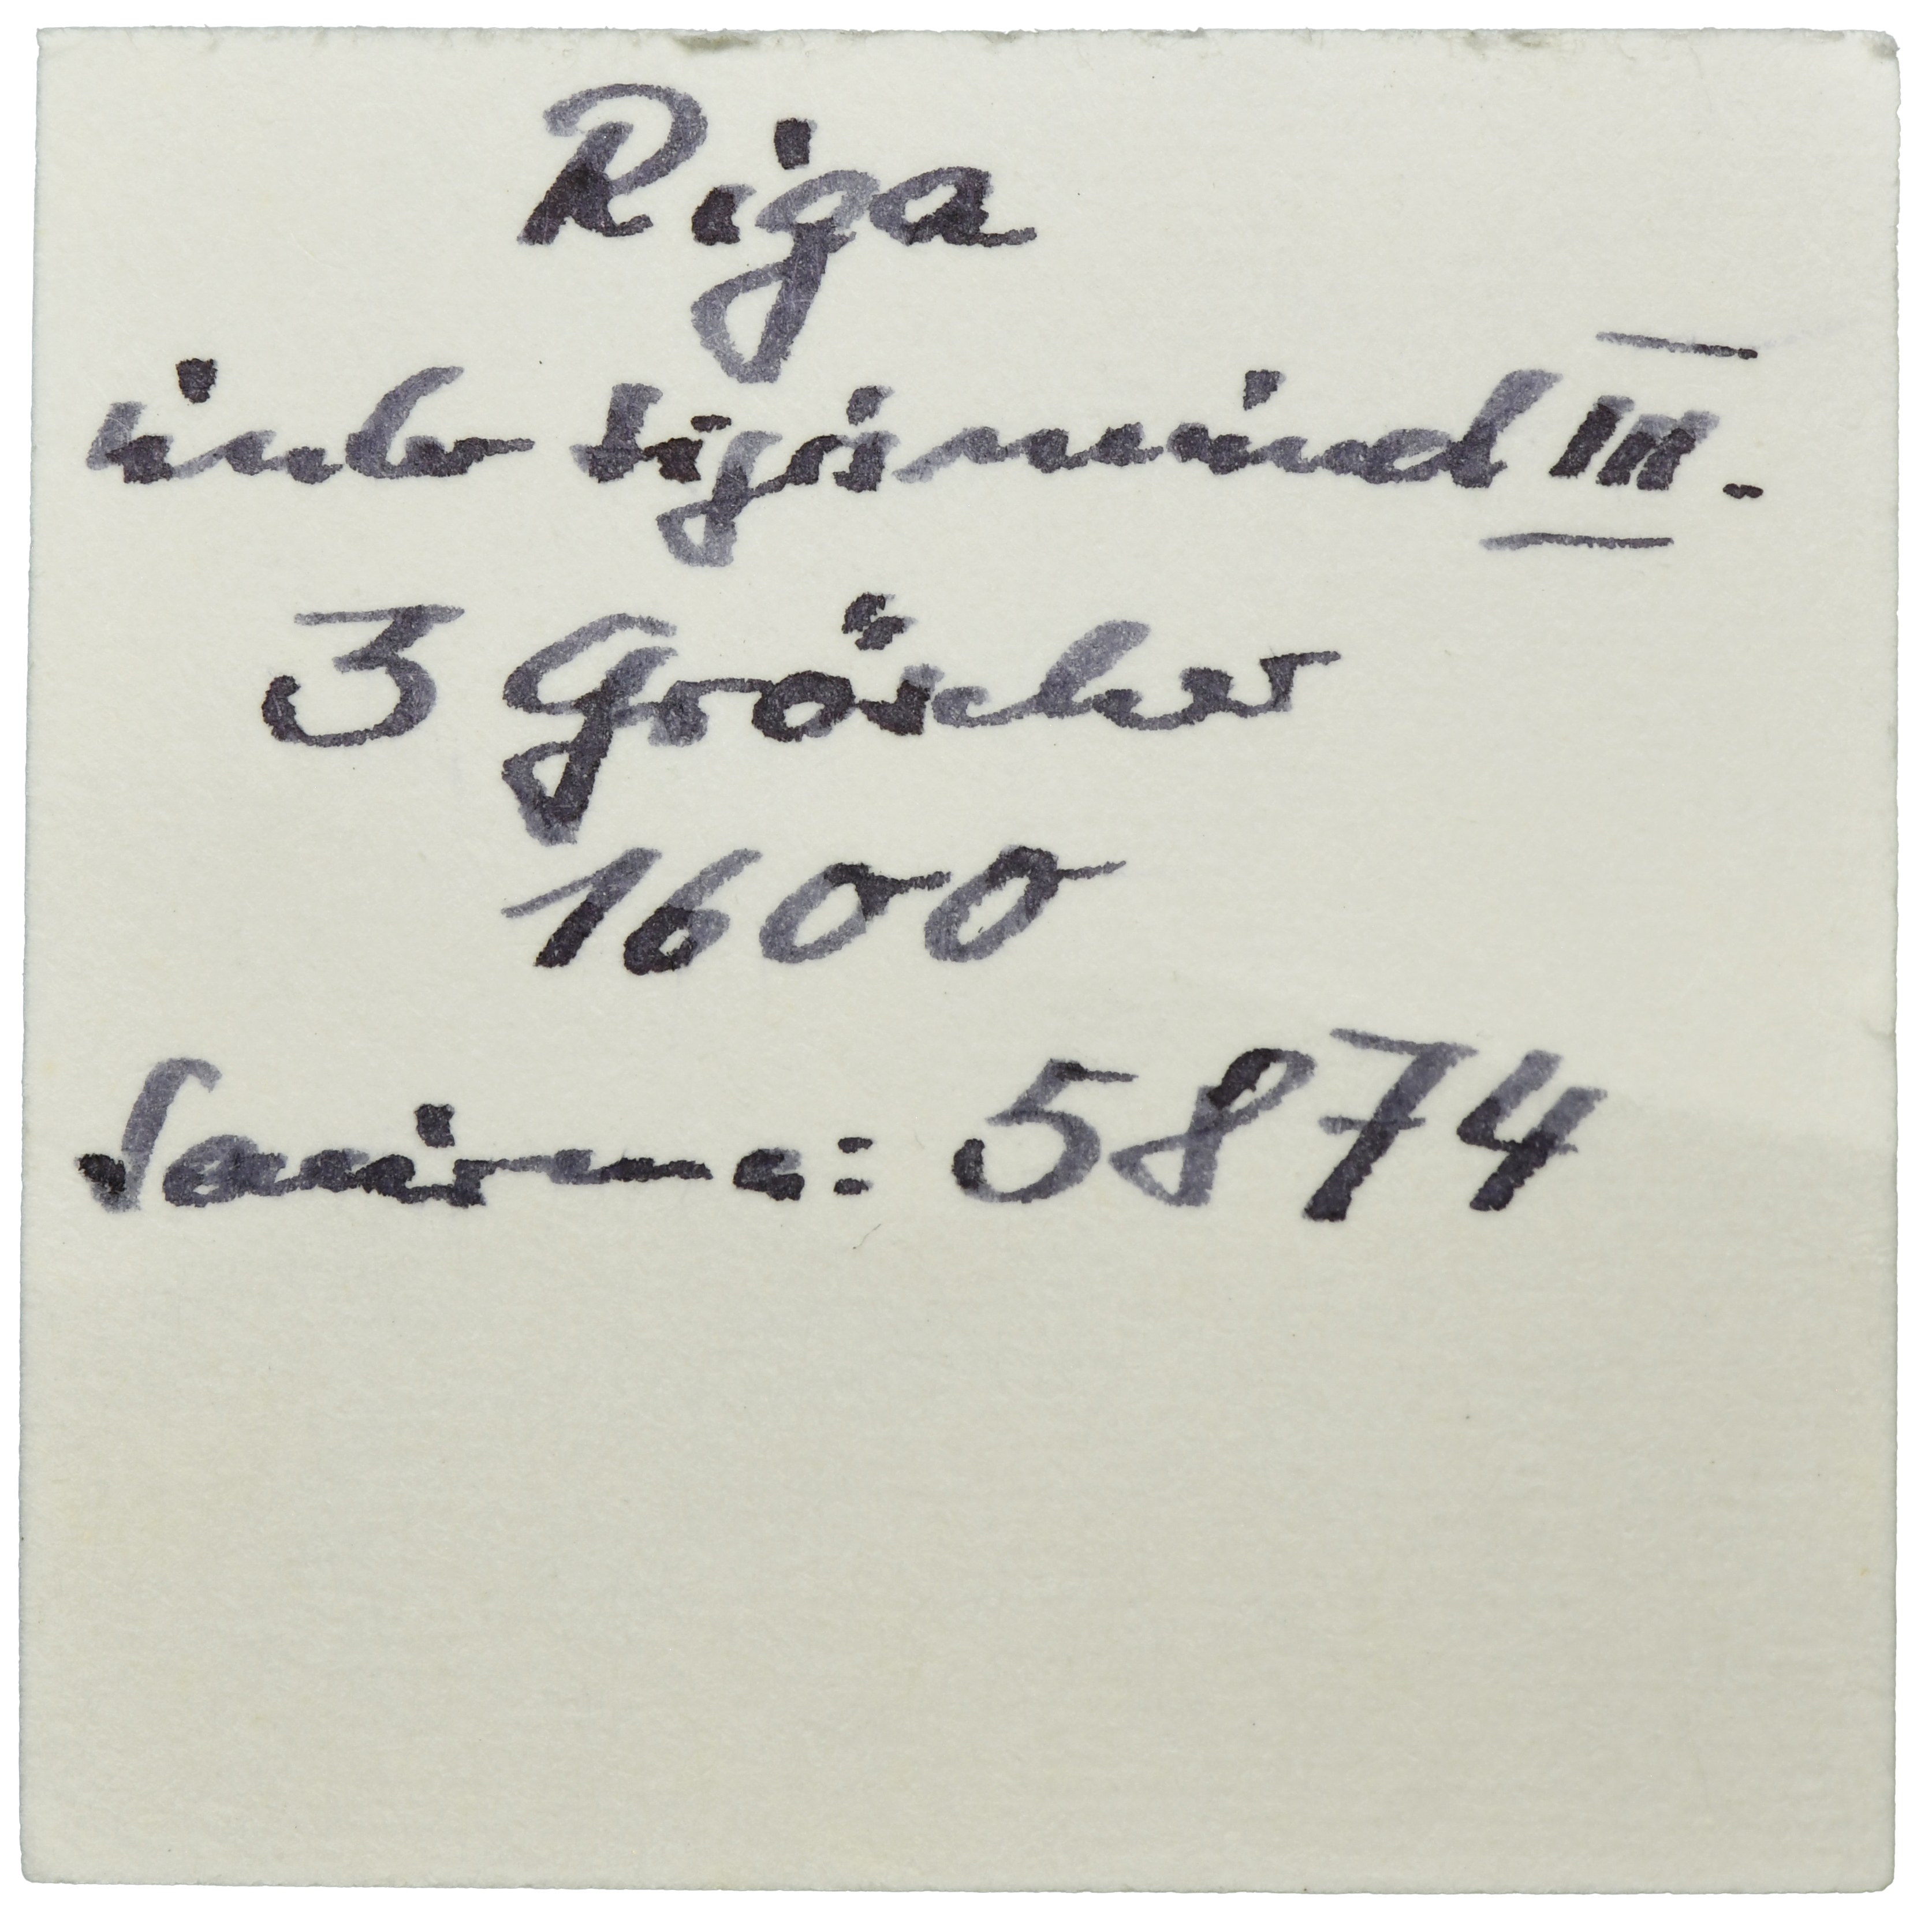 Riga
unter Sigismund III.
3 Gröscher
1600
Saurma: 5874